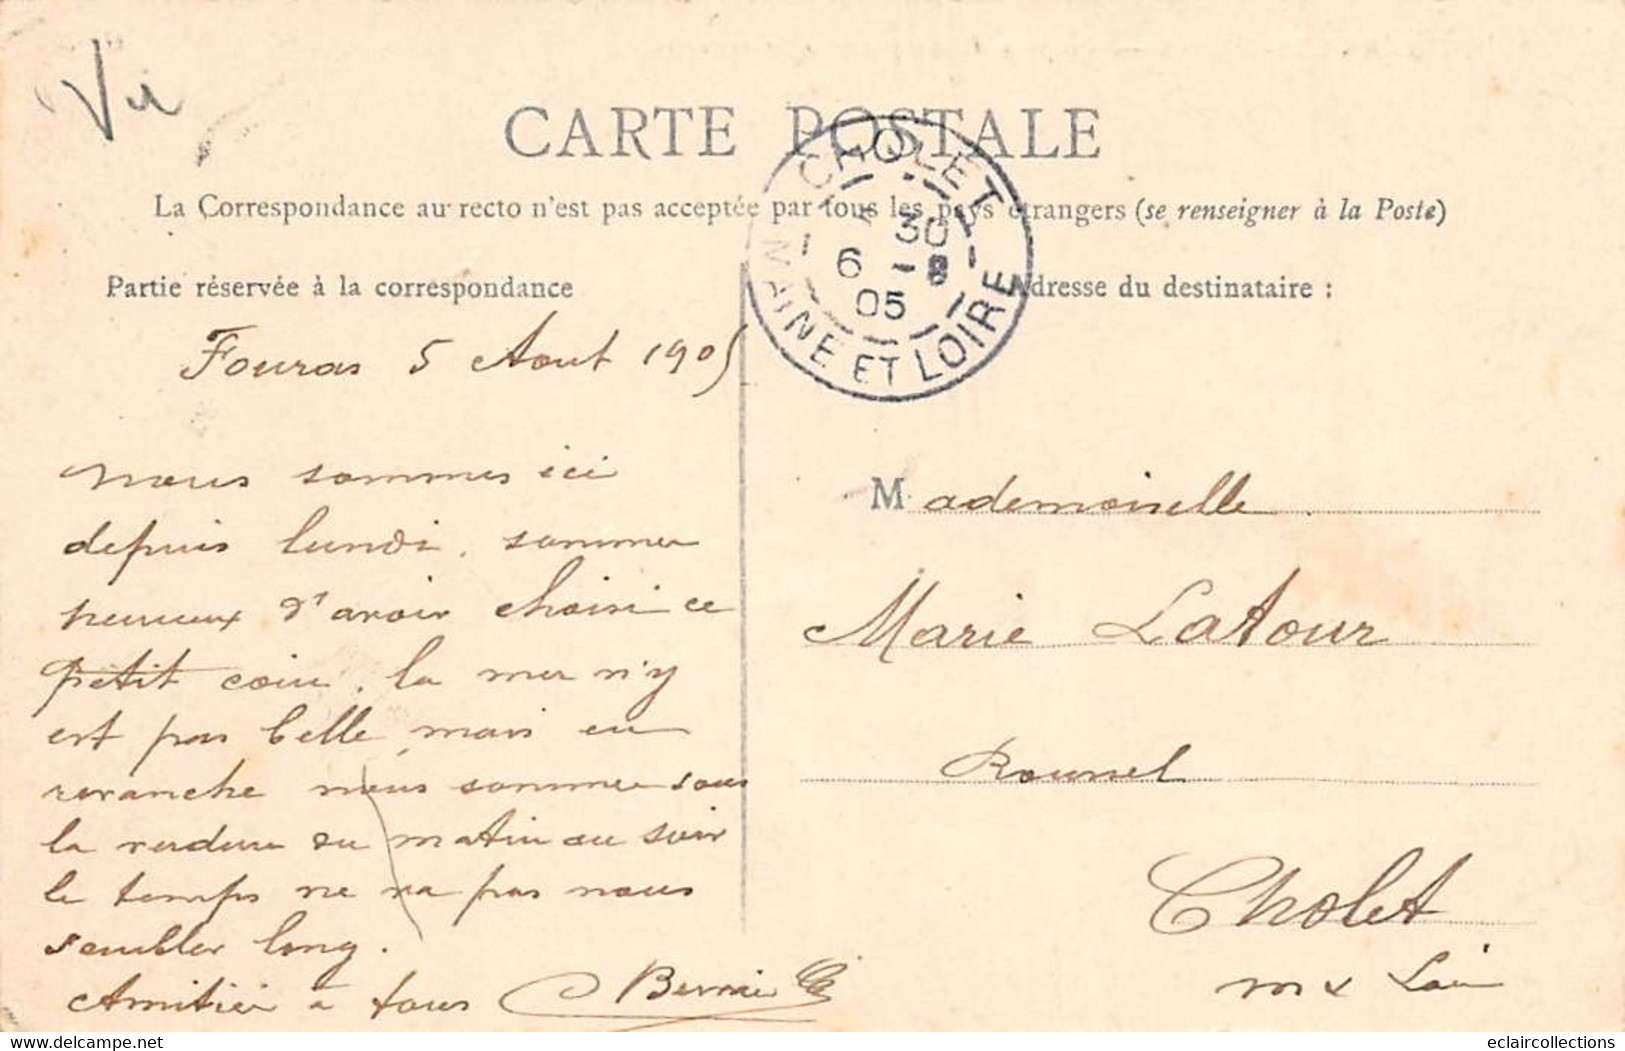 Vu
CARTE POSTALE
La Correspondance au recto n'est pas acceptée par tous les pays étrangers (se renseigner à la Poste)
CHOLET
30
6 - 8
05
MAINE ET LOIRE
Partie réservée à la correspondance
Adresse du destinataire :
Fouras 5 Aout 1905
nous sommes ici
depuis lundi, sommes
heureux d'avoir choisi ce
petit coin, la mer n'y
est pas belle, mais en
revanche nous sommes sous
la verdure du matin au soir
le temps ne va pas nous
sembler long.
Amitiés à tous
Mademoiselle
Marie Latour
Roussel
Cholet
m & Loire
delcampe.net
eclaircollections